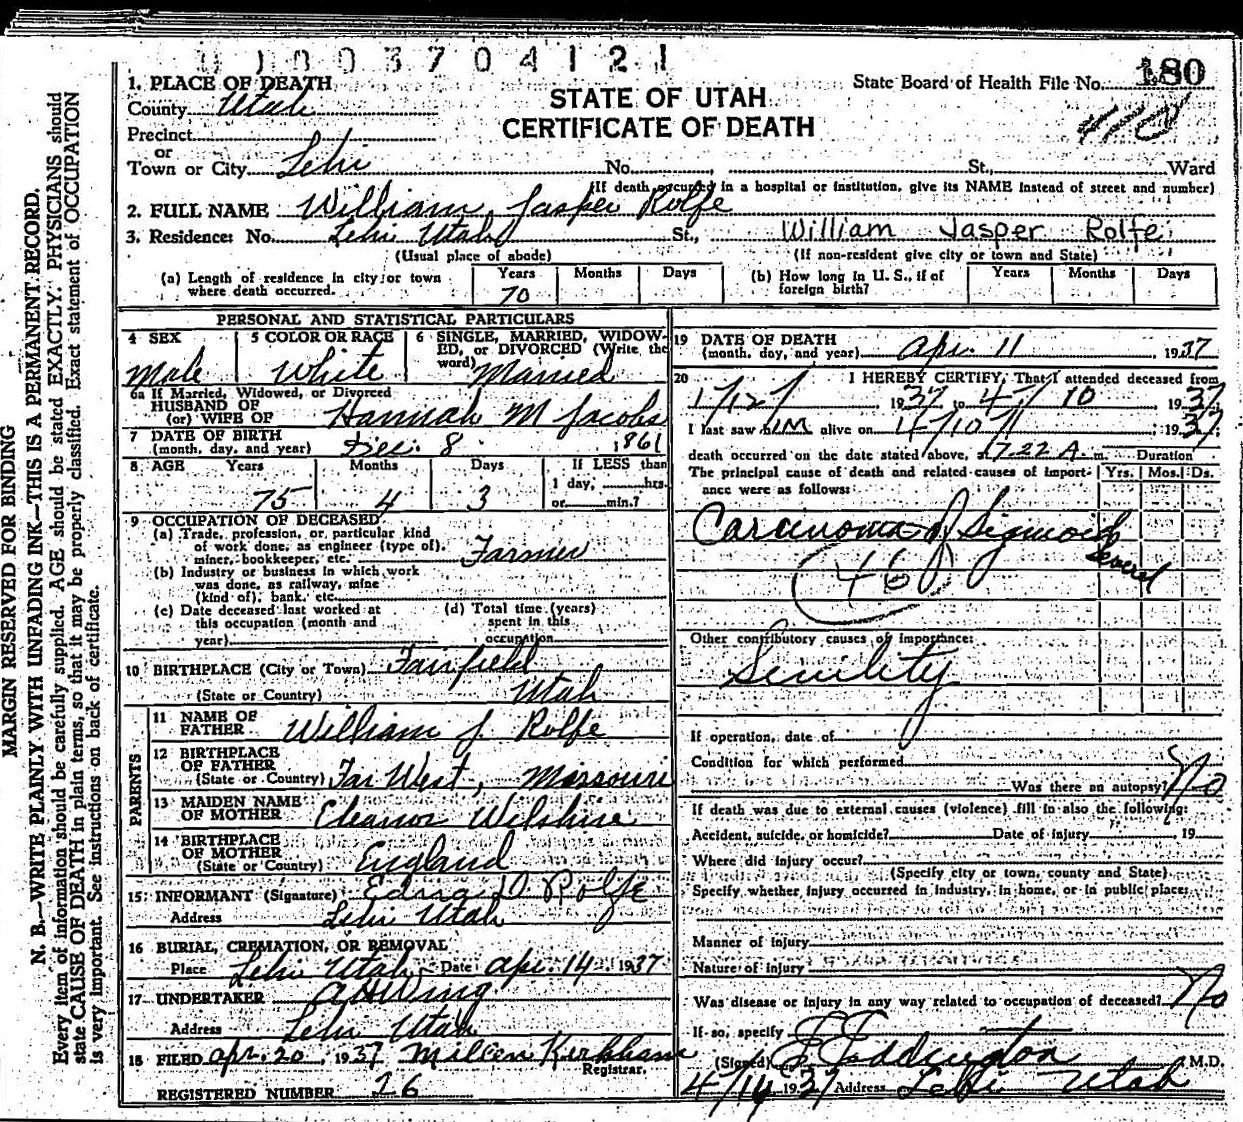 0 1 0 0 3 7 0 4 1 2 1
1. PLACE OF DEATH
State Board of Health File No. 180
County Utah
STATE OF UTAH
CERTIFICATE OF DEATH
410
Precinct
or
Town or City Lehi No. St., Ward
(If death occurred in a hospital or institution, give its NAME instead of street and number)
2. FULL NAME William Jasper Rolfe
3. Residence: No. Lehi Utah St., William Jasper Rolfe
(Usual place of abode) (If non-resident give city or town and State)
(a) Length of residence in city or town where death occurred. Years 70 Months Days
(b) How long in U. S., if of foreign birth? Years Months Days
PERSONAL AND STATISTICAL PARTICULARS
4 SEX Male
5 COLOR OR RACE White
6 SINGLE, MARRIED, WIDOWED, or DIVORCED (Write the word) Married
6a If Married, Widowed, or Divorced
HUSBAND OF
(or) WIFE OF Hannah M Jacobs
7 DATE OF BIRTH
(month, day, and year) Dec. 8 1861
8 AGE Years 75 Months 4 Days 3 If LESS than 1 day, hrs. or min.?
9 OCCUPATION OF DECEASED
(a) Trade, profession, or particular kind of work done, as engineer (type of), miner, bookkeeper, etc. Farmer
(b) Industry or business in which work was done, as railway, mine (kind of), bank, etc.
(c) Date deceased last worked at this occupation (month and year)
(d) Total time (years) spent in this occupation
10 BIRTHPLACE (City or Town) Fairfield
(State or Country) Utah
PARENTS
11 NAME OF FATHER William J. Rolfe
12 BIRTHPLACE OF FATHER
(State or Country) Far West, Missouri
13 MAIDEN NAME OF MOTHER Eleanor Wilshire
14 BIRTHPLACE OF MOTHER
(State or Country) England
15 INFORMANT (Signature) Edna D Rolfe
Address Lehi Utah
16 BURIAL, CREMATION, OR REMOVAL
Place Lehi Utah Date apr. 14 1937
17 UNDERTAKER A H Wing
Address Lehi Utah
18 FILED apr. 20, 1937 Millen Kirkham
Registrar.
REGISTERED NUMBER 26
19 DATE OF DEATH
(month, day, and year) apr. 11 1937
20 I HEREBY CERTIFY, That I attended deceased from
1/12/ 1937 to 4/10 1937
I last saw him alive on 4/10/ 1937
death occurred on the date stated above, at 7.22 A. m. Duration
The principal cause of death and related causes of importance were as follows: Yrs. Mos. Ds.
Carcinoma of Sigmoid
several
46
Other contributory causes of importance:
Senility
If operation, date of
Condition for which performed
Was there an autopsy? No
If death was due to external causes (violence) fill in also the following:
Accident, suicide, or homicide? Date of injury 19
Where did injury occur?
(Specify city or town, county and State)
Specify whether injury occurred in industry, in home, or in public place:
Manner of injury
Nature of injury
Was disease or injury in any way related to occupation of deceased? No
If so, specify
(Signed) E Eddington M.D.
4/14 1937 Address Lehi Utah
MARGIN RESERVED FOR BINDING
N. B.—WRITE PLAINLY WITH UNFADING INK—THIS IS A PERMANENT RECORD.
Every item of information should be carefully supplied. AGE should be stated EXACTLY. PHYSICIANS should
state CAUSE OF DEATH in plain terms, so that it may be properly classified. Exact statement of OCCUPATION
is very important. See instructions on back of certificate.